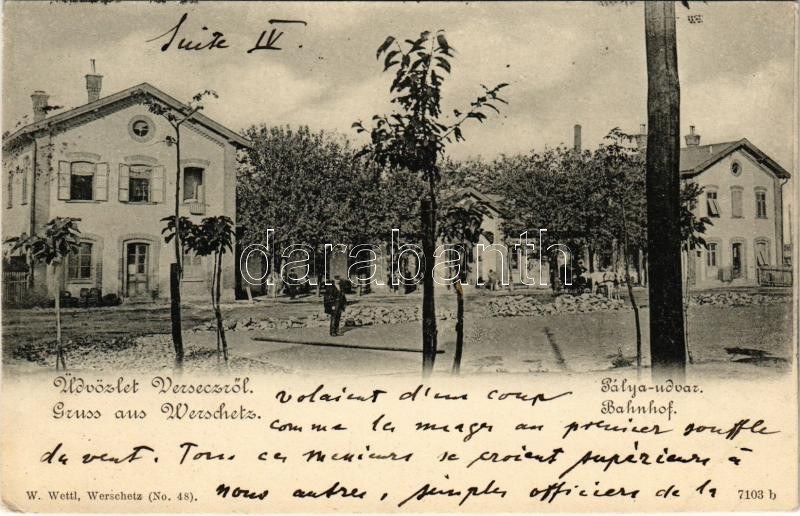 Suite IV.
darabanth
Üdvözlet Verseczről.
Gruss aus Werschetz.
Pálya-udvar.
Bahnhof.
volaient d'un coup
comme les nuages au premier souffle
du vent. Tous ces messieurs se croient supérieurs à
nous autres, simples officiers de la
W. Wettl, Werschetz (No. 48).
7103 b